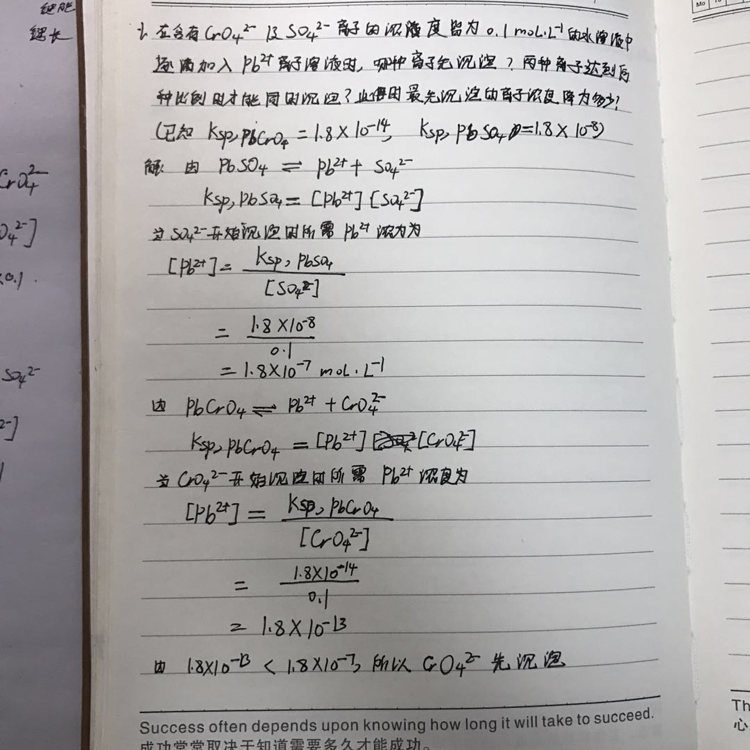 继肥
继长
CrO₄²⁻
O₄²⁻]
×0.1
SO₄²⁻
²⁻]
Mo
1. 在含有CrO₄²⁻ 以 SO₄²⁻ 离子的浓度皆为 0.1 mol·L⁻¹ 的水溶液中
逐滴加入 Pb²⁺离子溶液时, 哪种离子先沉淀? 两种离子达到何
种比例时才能同时沉淀? 此时最先沉淀的离子浓度降为多少?
(已知 Ksp, PbCrO₄ = 1.8×10⁻¹⁴, Ksp, PbSO₄ = 1.8×10⁻⁸)
解: 由 PbSO₄ ⇌ Pb²⁺ + SO₄²⁻
Ksp, PbSO₄ = [Pb²⁺][SO₄²⁻]
当SO₄²⁻开始沉淀时所需 Pb²⁺ 浓为为
[Pb²⁺] = Ksp, PbSO₄ / [SO₄²⁻]
= 1.8×10⁻⁸ / 0.1
= 1.8×10⁻⁷ mol·L⁻¹
由 PbCrO₄ ⇌ Pb²⁺ + CrO₄²⁻
Ksp, PbCrO₄ = [Pb²⁺][CrO₄²⁻]
当 CrO₄²⁻开始沉淀时所需 Pb²⁺ 浓度为
[Pb²⁺] = Ksp, PbCrO₄ / [CrO₄²⁻]
= 1.8×10⁻¹⁴ / 0.1
= 1.8×10⁻¹³
由 1.8×10⁻¹³ < 1.8×10⁻⁷, 所以 CrO₄²⁻ 先沉淀
Success often depends upon knowing how long it will take to succeed.
成功常常取决于知道需要多久才能成功。
Th
心